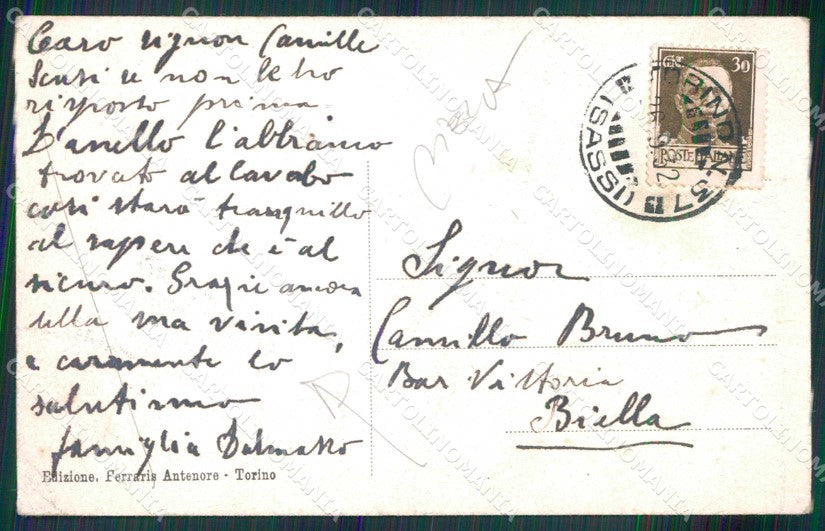 Caro signor Camillo
Scusi se non le ho
risposto prima
L'anello l'abbiamo
trovato al lavabo
così starà tranquillo
al sapere che è al
sicuro. Grazie ancora
della sua visita,
e caramente lo
salutiamo
famiglia Dalmasso
Edizione. Ferraris Antenore - Torino
CENT. 30
POSTE ITALIANE
TORINO N. 37
(SASSI)
Signor
Camillo Bruno
Bar Vittoria
Biella
CARTOLINOMANIA